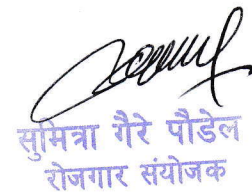 सुमित्रा गैरे पौडेल
रोजगार संयोजक